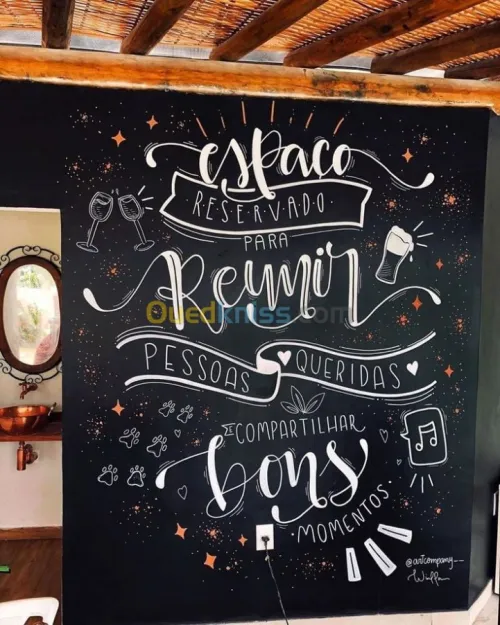 espaço
RESERVADO
PARA
Reunir
Ouedkniss.com
PESSOAS QUERIDAS
E COMPARTILHAR
bons
MOMENTOS
@artcompany__